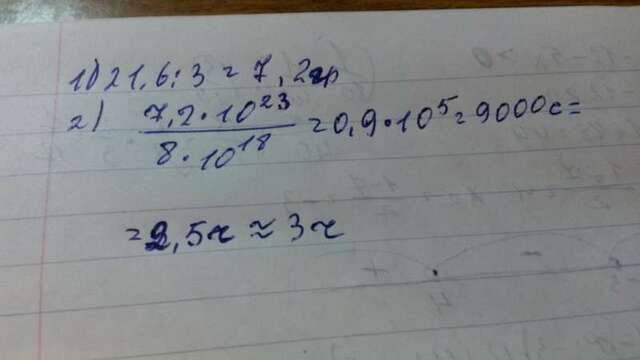 1) 21,6 : 3 = 7,2 гр
2) 7,2 · 10²³ / 8 · 10¹⁸ = 0,9 · 10⁵ = 9000 с =
= 2,5 ч ≈ 3 ч